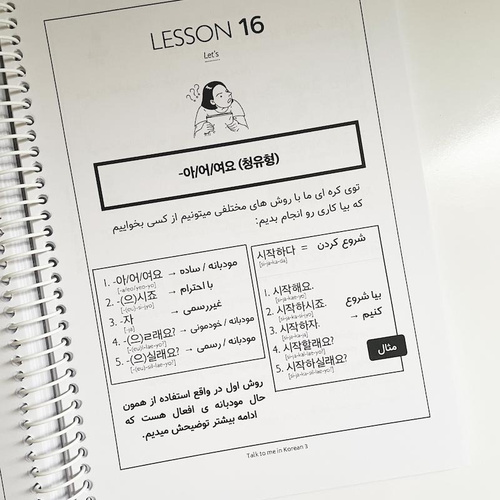 LESSON 16
Let's
-아/어/여요 (청유형)
توی کره ای ما با روش های مختلفی میتونیم از کسی بخواییم
که بیا کاری رو انجام بدیم:
1. -아/어/여요 → مودبانه / ساده
[-a/eo/yeo-yo]
2. -(으)시죠 → با احترام
[-(eu)-si-jyo]
3. -자 → غیررسمی
[-ja]
4. -(으)ㄹ래요? → مودبانه / خودمونی
[-(eu)l-lae-yo?]
5. -(으)실래요? → مودبانه / رسمی
[-(eu)-sil-lae-yo?]
시작하다 = شروع کردن
[si-ja-ka-da]
1. 시작해요.
[si-ja-kae-yo]
2. 시작하시죠.
[si-ja-ka-si-jyo]
3. 시작하자.
[si-ja-ka-ja]
4. 시작할래요?
[si-ja-kal-lae-yo?]
5. 시작하실래요?
[si-ja-ka-sil-lae-yo?]
بیا شروع
کنیم →
مثال
روش اول در واقع استفاده از همون
حال مودبانه ی افعال هست که
ادامه بیشتر توضیحش میدیم.
Talk to me in Korean 3